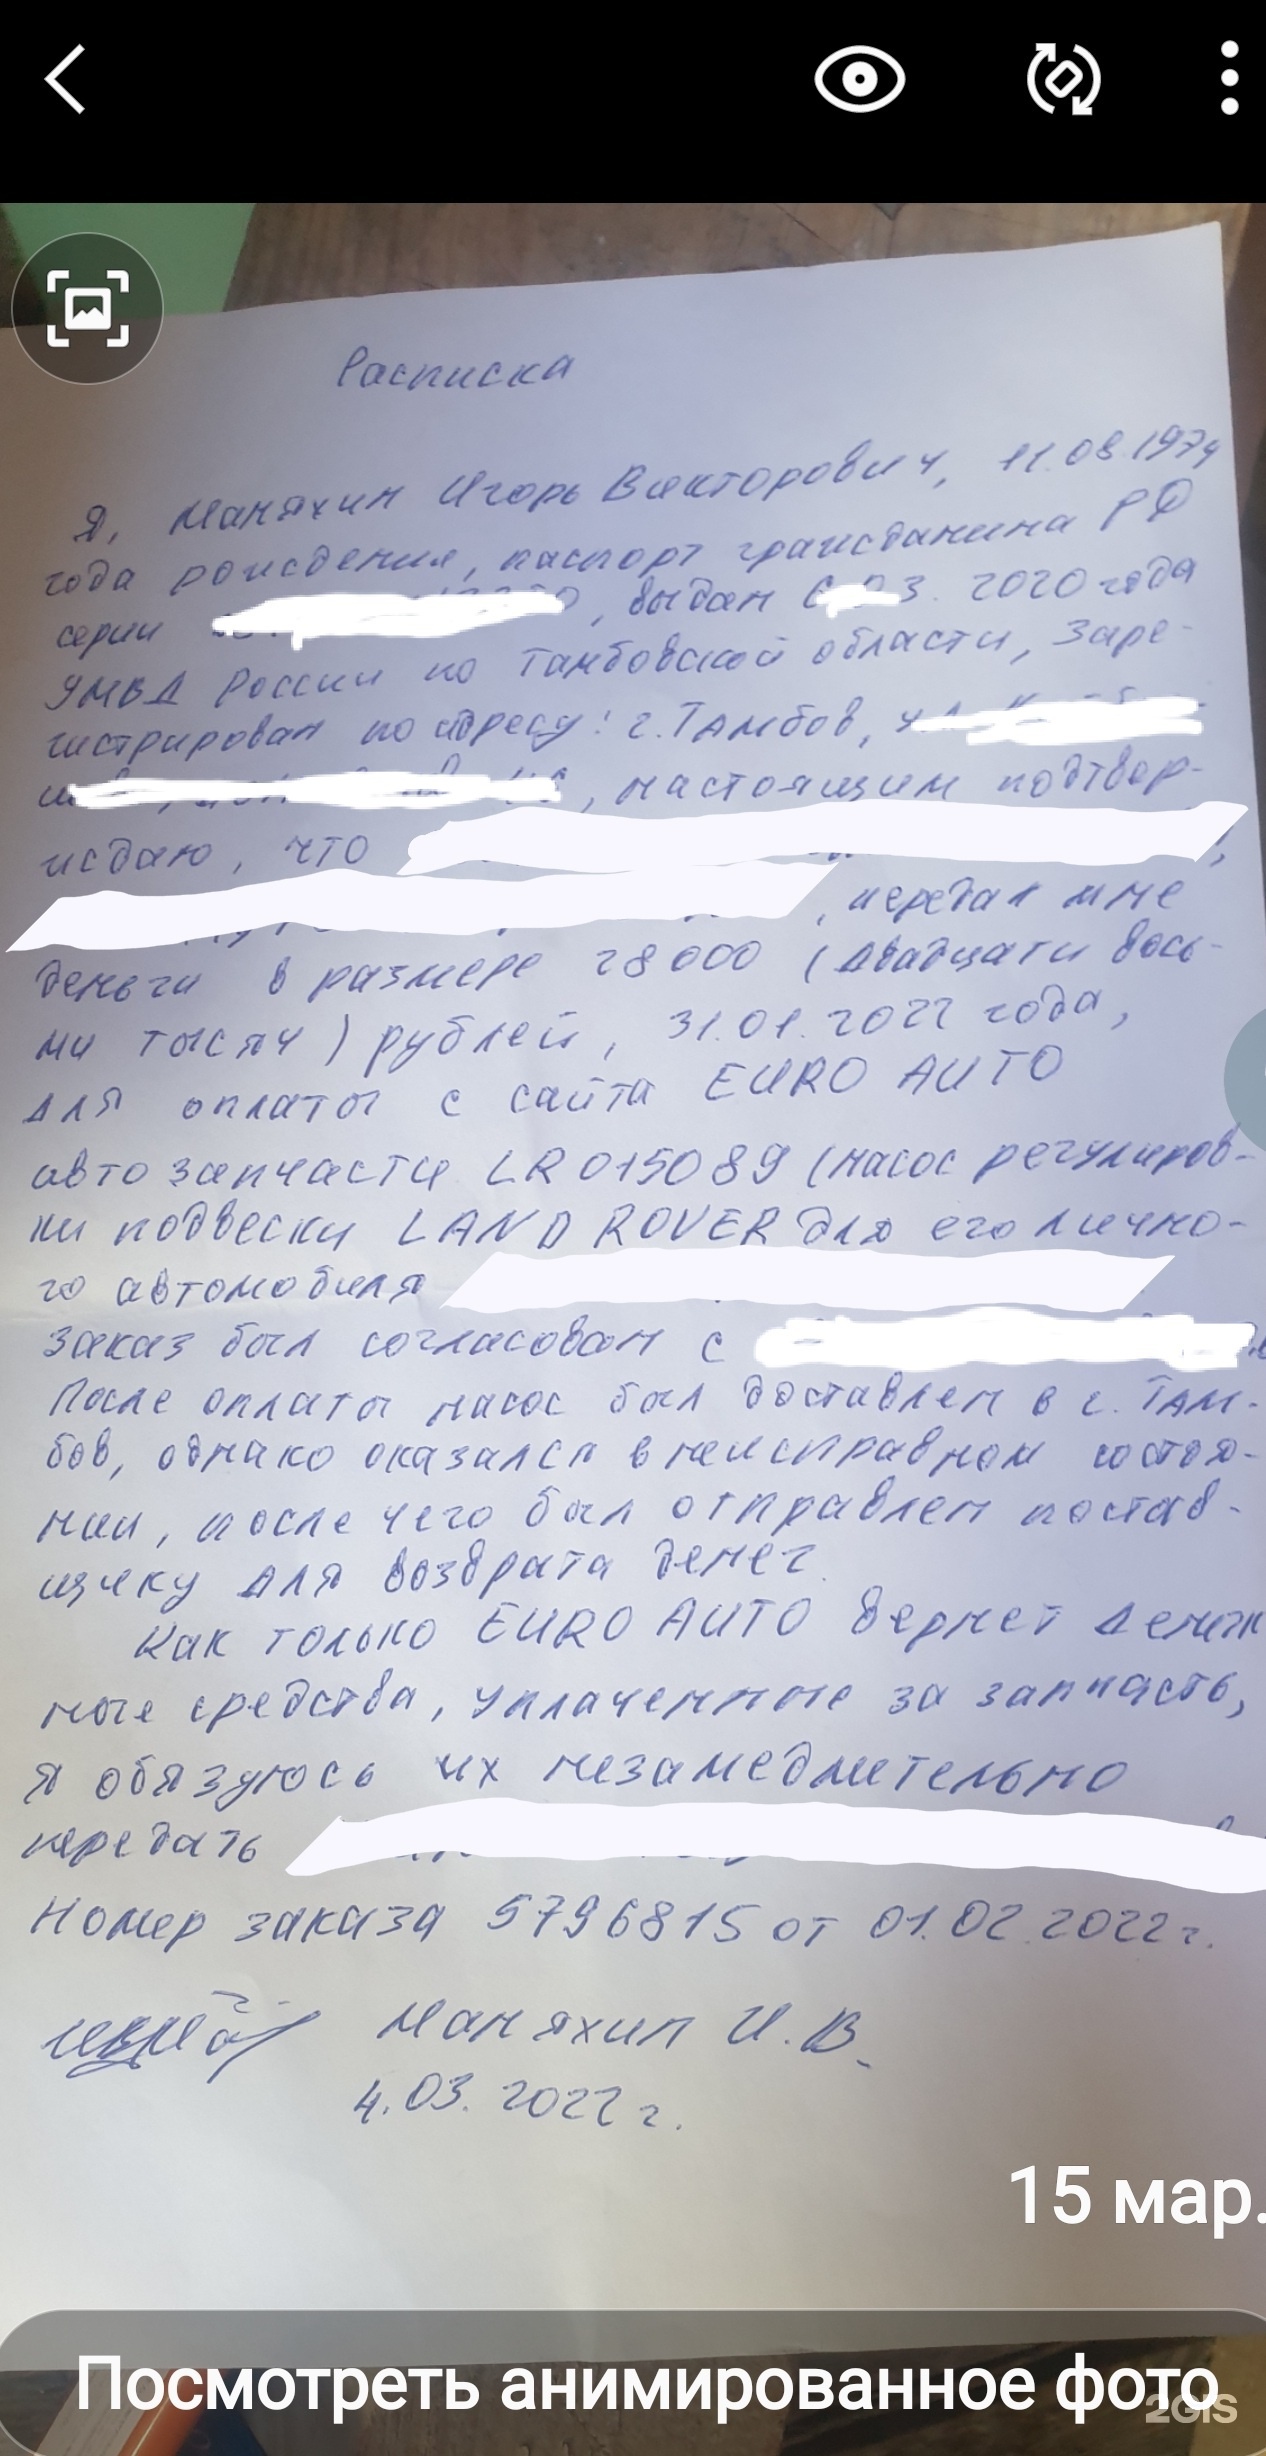 Расписка
Я, Маняхин Игорь Викторович, 11.08.1974
года рождения, паспорт гражданина РФ
серии , выдан 3. 2020 года
УМВД России по Тамбовской области, Заре-
гистрирован по адресу: г. Тамбов, ул.
, настоящим подтвер-
ждаю, что
, передал мне
деньги в размере 28000 (двадцати вось-
ми тысяч) рублей, 31.01.2022 года,
для оплаты с сайта EURO AUTO
автозапчасти LR015089 (насос регулиров-
ки подвески LAND ROVER для его лично-
го автомобиля
Заказ был согласован с
После оплаты насос был доставлен в г. Там-
бов, однако оказался в неисправном состоя-
нии, после чего был отправлен постав-
щику для возврата денег.
Как только EURO AUTO вернет денеж
ные средства, уплаченные за запчасть,
Я обязуюсь их незамедлительно
передать
Номер заказа 5796815 от 01.02.2022 г.
Маняхин И.В.
4.03.2022 г.
15 мар.
Посмотреть анимированное фото
2GIS